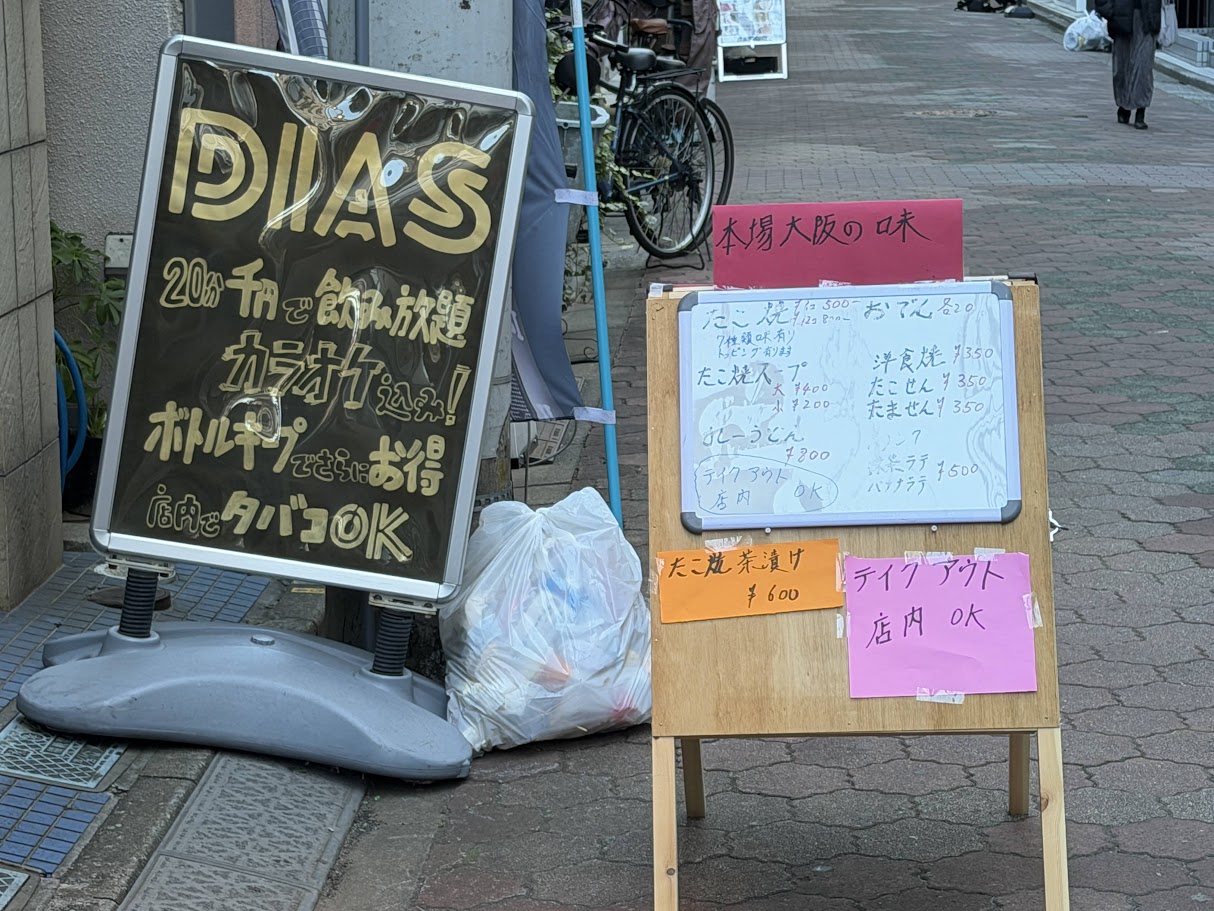 DIAS
20分千円で飲み放題
カラオケ込み!
ボトルキープでさらにお得
店内でタバコOK
本場大阪の味
たこ焼
おでん 各20
7種類味有り
トッピング有ります
洋食焼 ¥350
大 ¥400
たこせん ¥350
小 ¥200
たません ¥350
カレーうどん
¥800
¥500
バナナラテ
テイクアウト
店内 OK
たこ焼茶漬け
¥600
テイクアウト
店内 OK